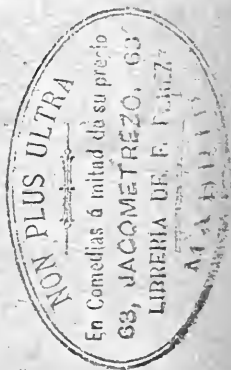 NON PLUS ULTRA
En Comedias á mitad de su precio
63, JACOMETREZO, 63
LIBRERIA DE F.
MADRID